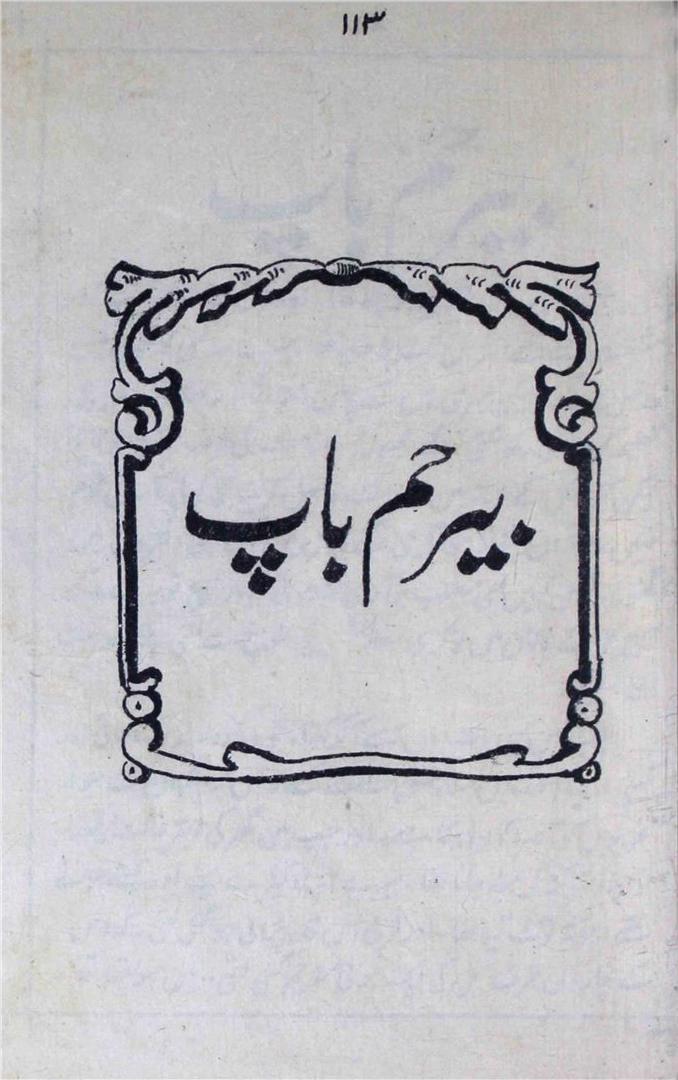 ۱۱۳
بیرحم باپ